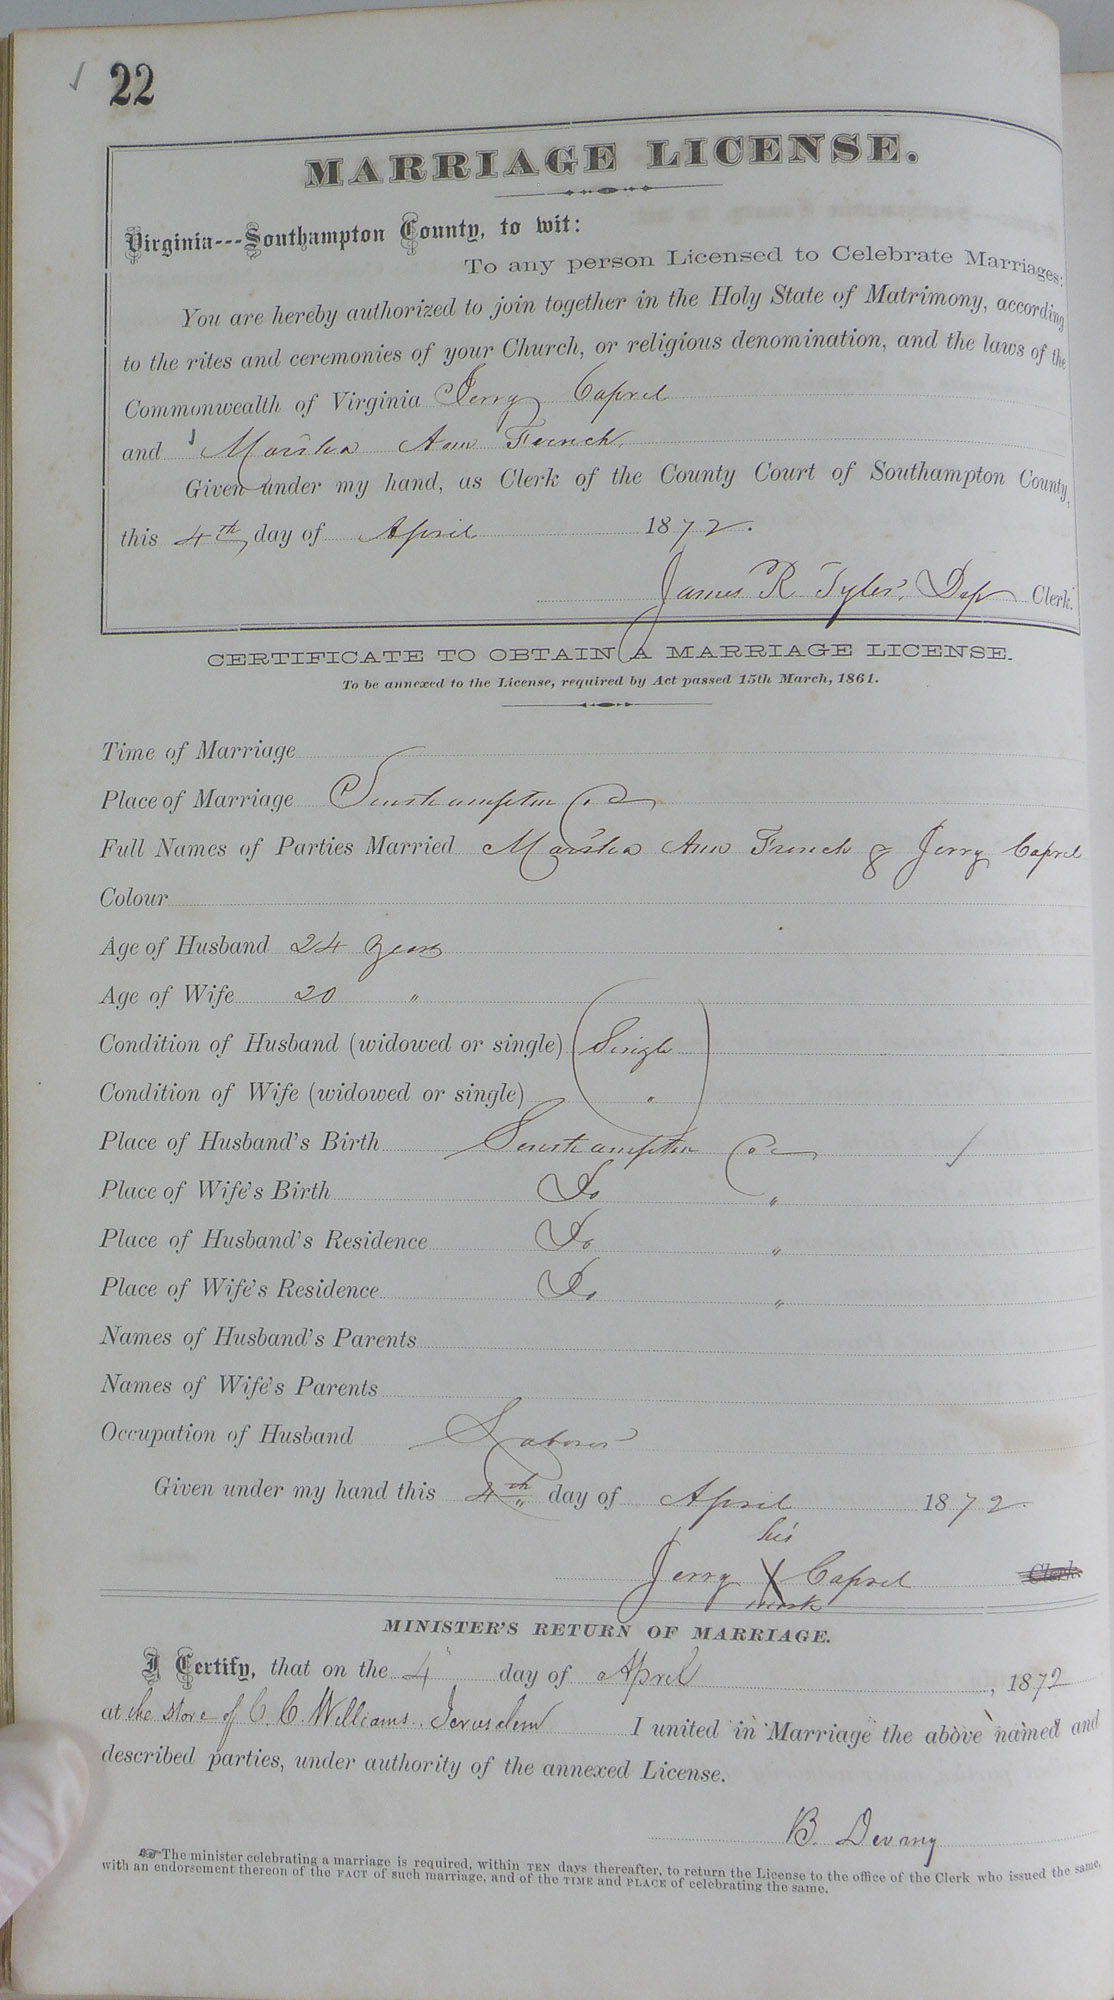 22
MARRIAGE LICENSE.
Virginia---Southampton County, to wit:
To any person Licensed to Celebrate Marriages:
You are hereby authorized to join together in the Holy State of Matrimony, according
to the rites and ceremonies of your Church, or religious denomination, and the laws of the
Commonwealth of Virginia Jerry Caprel
and Marsha Ann French
Given under my hand, as Clerk of the County Court of Southampton County,
this 4th day of April 1872.
James R Tyler, Dep Clerk.
CERTIFICATE TO OBTAIN A MARRIAGE LICENSE.
To be annexed to the License, required by Act passed 15th March, 1861.
Time of Marriage
Place of Marriage Southampton Co
Full Names of Parties Married Marsha Ann French & Jerry Caprel
Colour
Age of Husband 24 years
Age of Wife 20 "
Condition of Husband (widowed or single) Single
Condition of Wife (widowed or single) "
Place of Husband's Birth Southampton Co
Place of Wife's Birth Do "
Place of Husband's Residence Do "
Place of Wife's Residence Do "
Names of Husband's Parents
Names of Wife's Parents
Occupation of Husband Laborer
Given under my hand this 4th day of April 1872.
his
Jerry X Caprel Clerk.
mark
MINISTER'S RETURN OF MARRIAGE.
I Certify, that on the 4 day of April, 1872
at the store of C. C. Williams. Jerusalem I united in Marriage the above named and
described parties, under authority of the annexed License.
B. Devany
The minister celebrating a marriage is required, within TEN days thereafter, to return the License to the office of the Clerk who issued the same,
with an endorsement thereon of the FACT of such marriage, and of the TIME and PLACE of celebrating the same.